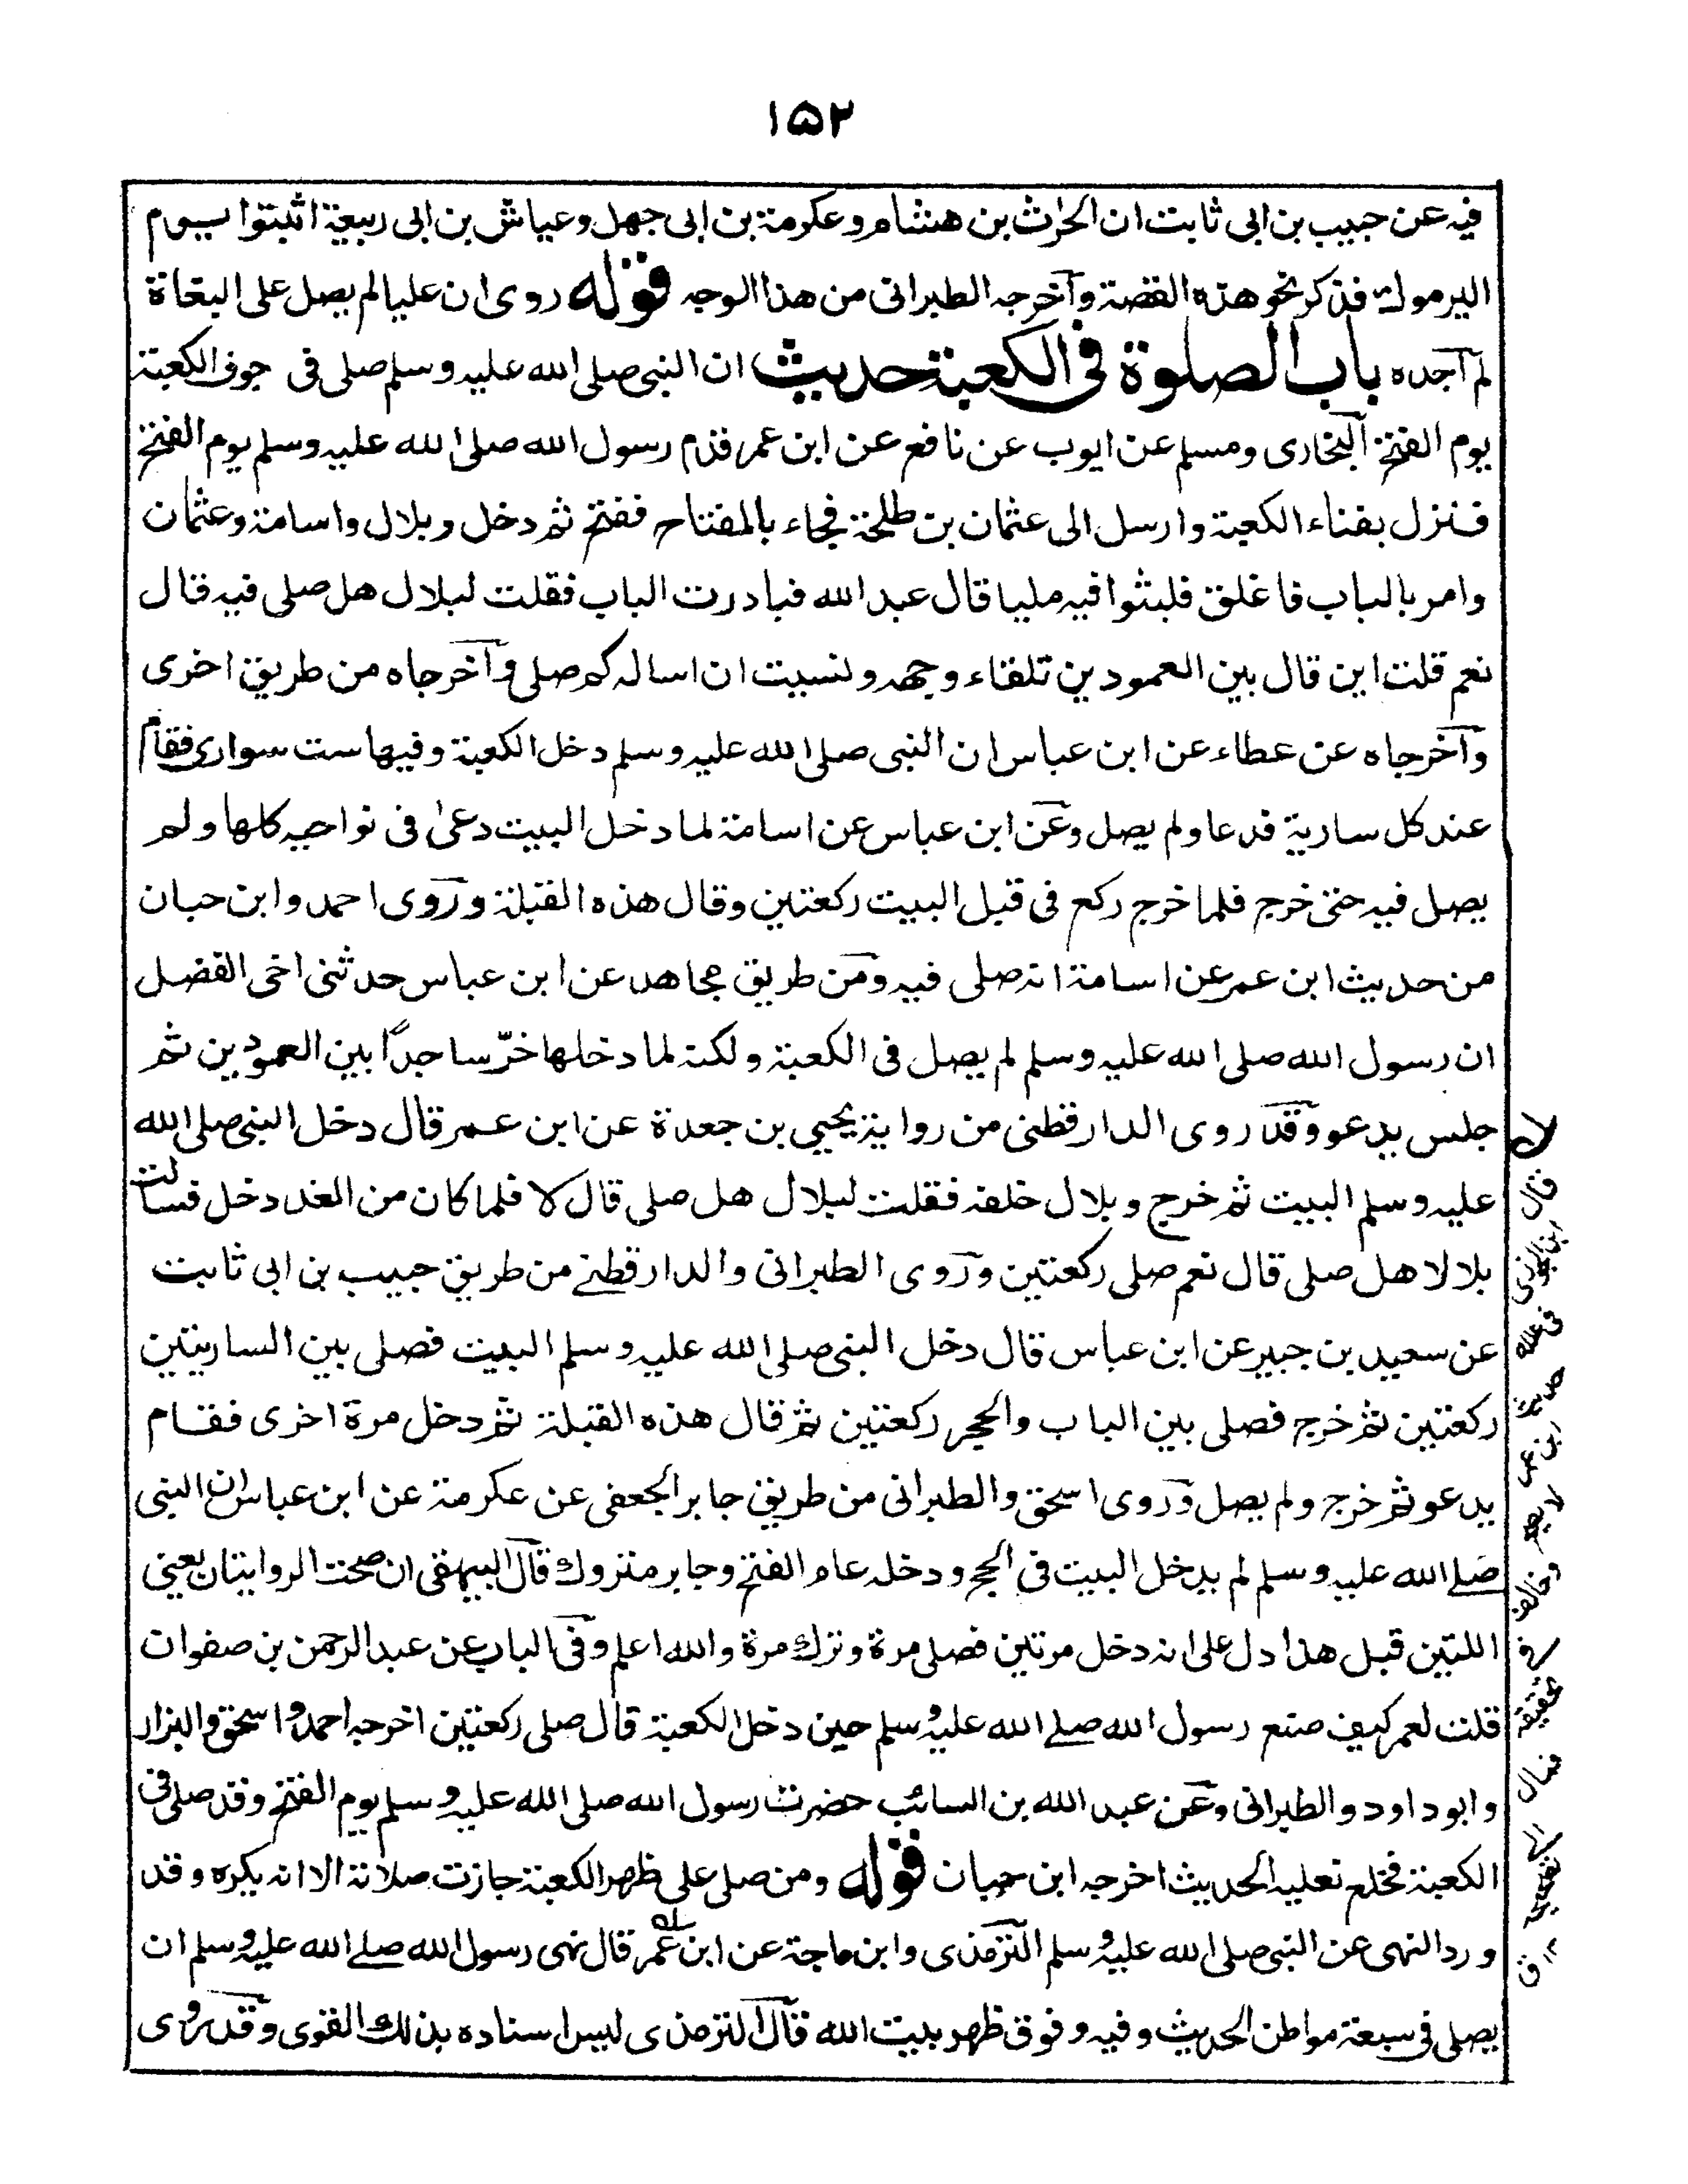 ١٥٢
فيه عن حبيب بن ابى ثابت ان الحٰرث بن هشام وعكرمة بن ابى جهل وعياش بن ابى ربيعة اثبتوا يوم
اليرموك فذكر نحو هذه القصة وآخرجه الطبرانى من هذا الوجه قوله روى ان عليا لم يصل على البغاة
لم آجده باب الصلوة فى الكعبة حديث ان النبى صلى الله عليه وسلم صلى فى جوف الكعبة
يوم الفتح البخارى ومسلم عن ايوب عن نافع عن ابن عمر قدم رسول الله صلى الله عليه وسلم يوم الفتح
فنزل بفناء الكعبة وارسل الى عثمان بن طلحة فجاء بالمفتاح ففتح ثم دخل وبلال واسامة وعثمان
وامر بالباب فاغلق فلبثوا فيه مليا قال عبد الله فبادرت الباب فقلت لبلال هل صلى فيه قال
نعم قلت اين قال بين العمودين تلقاء وجهه ونسيت ان اساله كم صلى وآخرجاه من طريق اخرى
وآخرجاه عن عطاء عن ابن عباس ان النبى صلى الله عليه وسلم دخل الكعبة وفيها ست سوارى فقام
عند كل سارية فدعا ولم يصل وعن ابن عباس عن اسامة لما دخل البيت دعىٰ فى نواحيه كلها ولم
يصل فيه حتى خرج فلما خرج ركع فى قبل البيت ركعتين وقال هذه القبلة وروى احمد وابن حبان
من حديث ابن عمر عن اسامة انه صلى فيه ومن طريق مجاهد عن ابن عباس حدثنى اخى الفضل
ان رسول الله صلى الله عليه وسلم لم يصل فى الكعبة ولكنه لما دخلها خرّ ساجدًا بين العمودين ثم
جلس يدعو وقد روى الدارقطنى من رواية يحيى بن جعدة عن ابن عمر قال دخل النبى صلى الله
عليه وسلم البيت ثم خرج وبلال خلفه فقلت لبلال هل صلى قال لا فلما كان من الغد دخل فسالت
بلالا هل صلى قال نعم صلى ركعتين وروى الطبرانى والدارقطنے من طريق حبيب بن ابى ثابت
عن سعيد بن جبير عن ابن عباس قال دخل النبى صلى الله عليه وسلم البيت فصلى بين الساريتين
ركعتين ثم خرج فصلى بين الباب والحجر ركعتين ثم قال هذه القبلة ثم دخل مرة اخرى فقام
يدعو ثم خرج ولم يصل وروى اسحق والطبرانى من طريق جابر الجعفى عن عكرمة عن ابن عباس ان النبى
صلے الله عليه وسلم لم يدخل البيت فى الحج ودخله عام الفتح وجابر متروك قال البيهقى ان صحت الروايتان يعنى
اللتين قبل هذا دل على انه دخل مرتين فصلى مرة وترك مرة والله اعلم وفى الباب عن عبد الرحمن بن صفوان
قلت لعمر كيف صنع رسول الله صلے الله عليه وسلم حين دخل الكعبة قال صلى ركعتين اخرجه احمد واسحق والبزار
وابوداود والطبرانى وعن عبد الله بن السائب حضرت رسول الله صلى الله عليه وسلم يوم الفتح وقد صلى فى
الكعبة فخلع نعليه الحديث اخرجه ابن حبان قوله ومن صلى على ظهر الكعبة جازت صلاته الا انه يكره وقد
ورد النهى عن النبى صلى الله عليه وسلم الترمذى وابن ماجة عن ابن عمر قال نهى رسول الله صلے الله عليه وسلم ان
يصلى فى سبعة مواطن الحديث وفيه وفوق ظهر بيت الله قال الترمذى ليس اسناده بذلك القوى وقد روى
لا
قال
ابن الجوزى
فى علله
حديث
ابن عمر
لا يصح
وخالف
فى
تحقيقه
فمال
الى
تصحيحه
١٢ ق